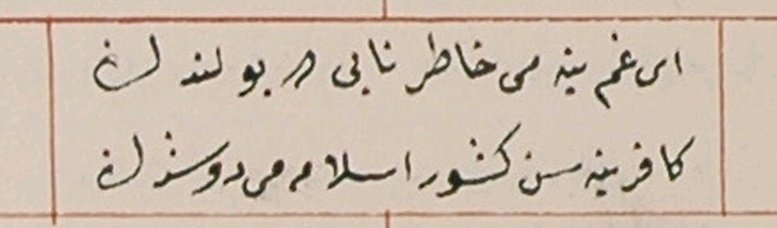 ای غم ینه می خاطر نابی ده بولندڭ
کافر ینه سن کشور اسلامه می دوشدڭ